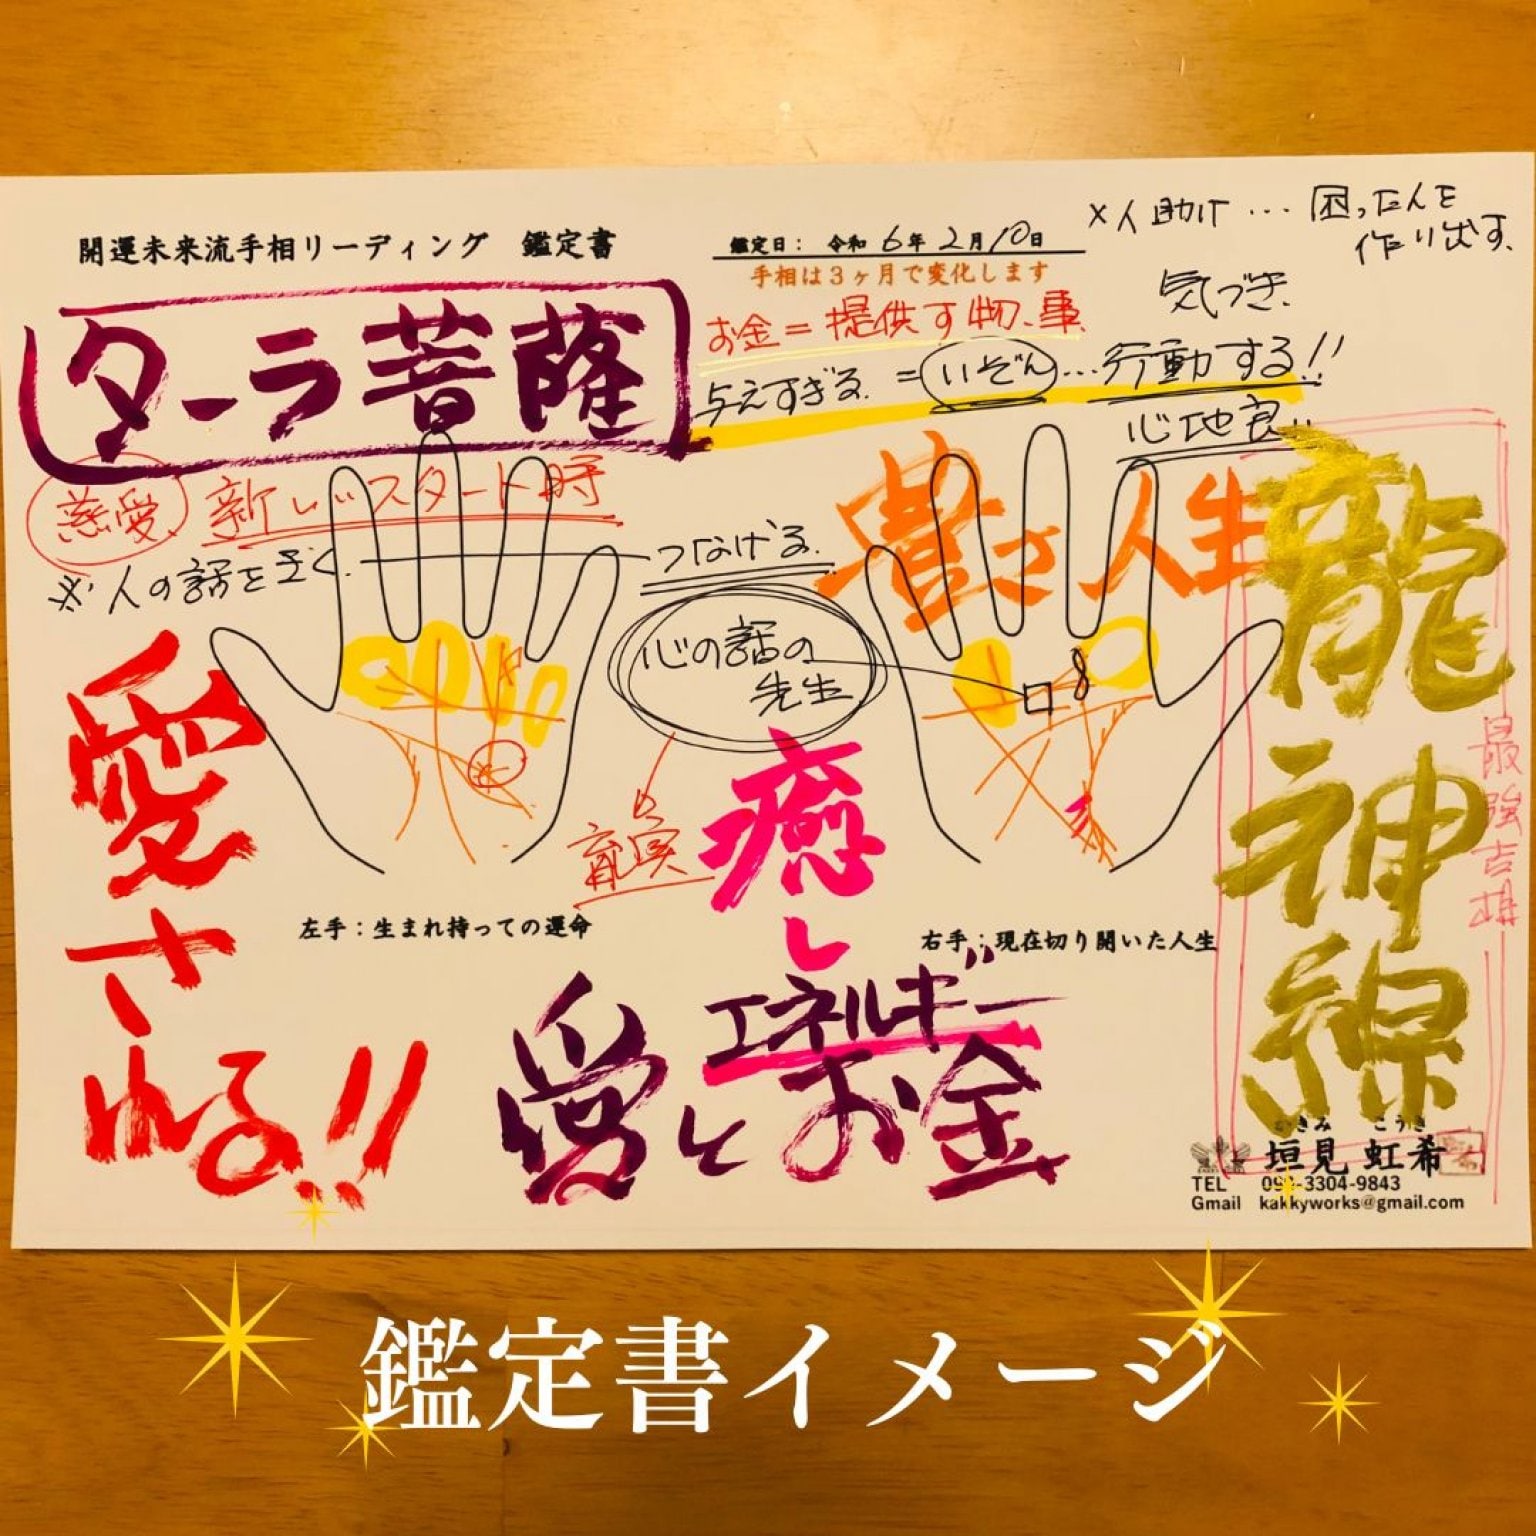 開運未来流手相リーディング 鑑定書
鑑定日： 令和 6年 2月 10日
手相は3ヶ月で変化します
×人助け … 困った人を
作り出す
お金＝提供す物、事
気づき
与えすぎる ＝ いぞん … 行動する!!
心地良
ターラ菩薩
慈愛 新しいスタート時
※人の話をきく つなげる
人生
心の話の
先生
龍神線
最強吉相
愛される!!
癒し
左手：生まれ持っての運命
右手：現在切り開いた人生
エネルギー
愛とお金
かきみ こうき
垣見 虹希
TEL 090-3304-9843
Gmail kakkyworks@gmail.com
鑑定書イメージ